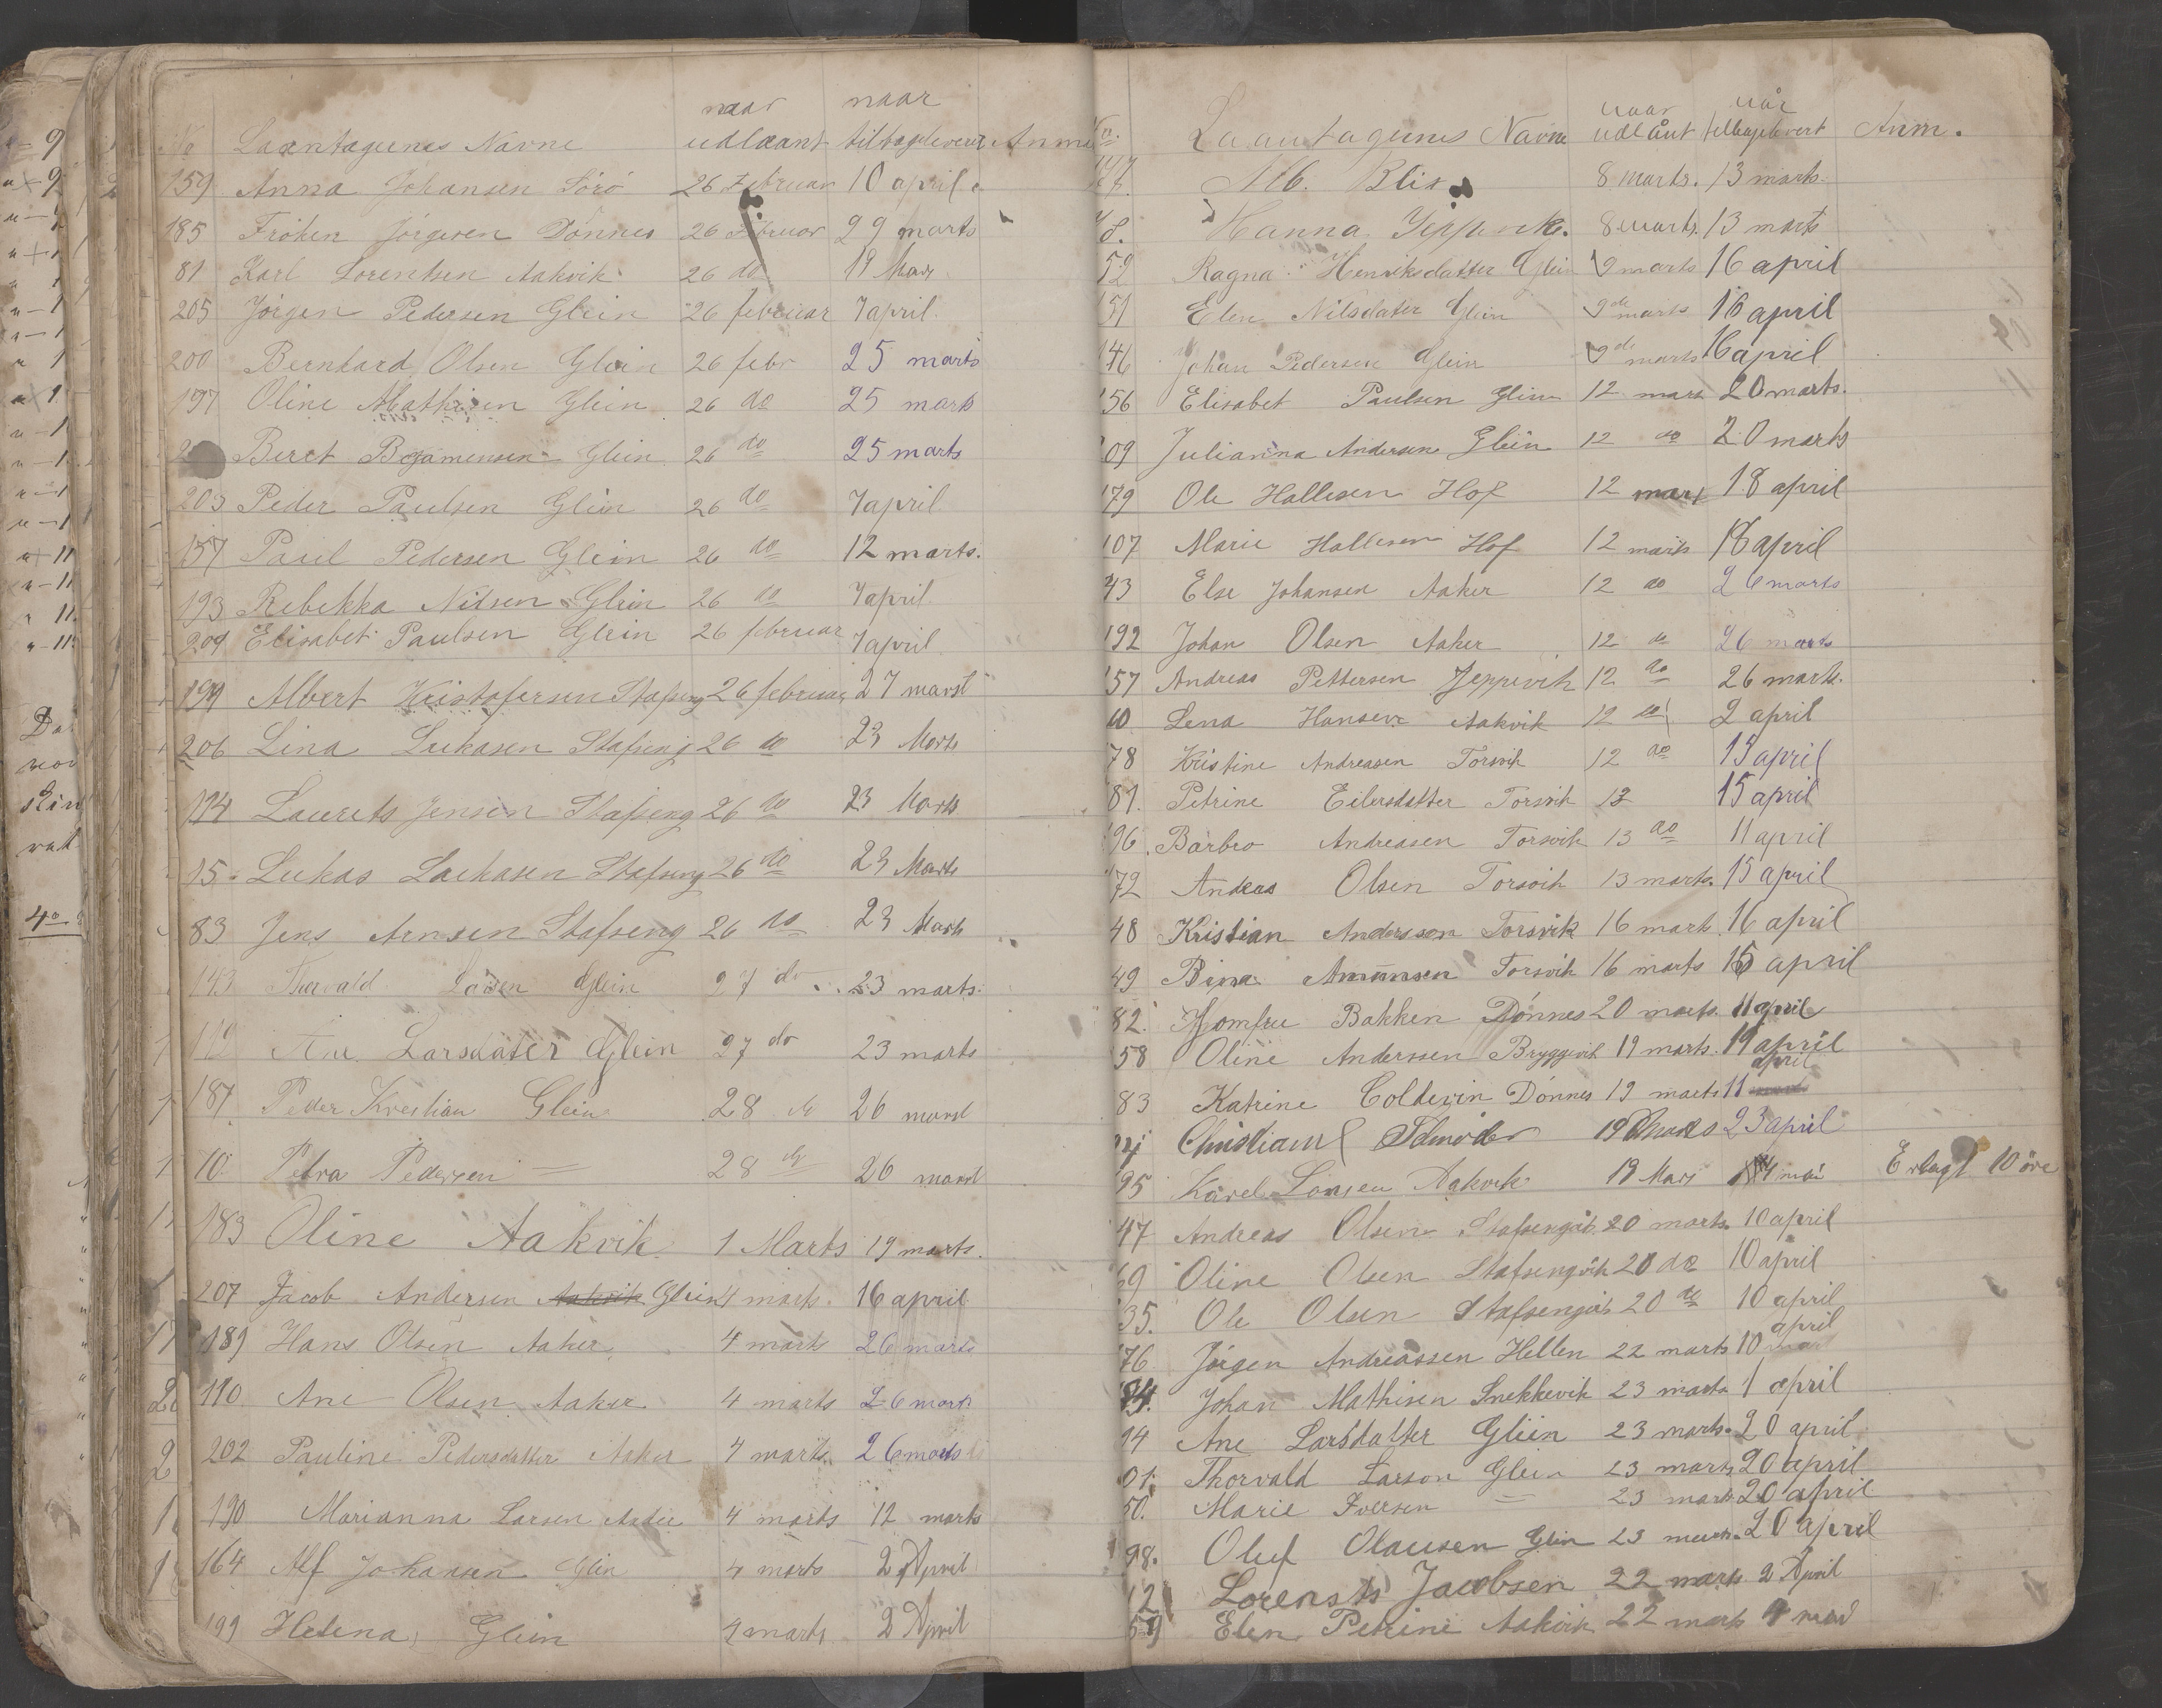 No Laantagernes Navne naar udlaant naar tilbagleveret Anm
159 Anna Johansen Sörö 26 Februar 10 april
185 Fröken Jörgesen Dönnes 26 Februar 29 marts
81 Karl Lorentsen Aakvik 26 do 19 Mars
205 Jörgen Pedersen Glein 26 februar 7 april
200 Bernhard Olsen Glein 26 febr 25 marts
197 Oline Mathisen Glein 26 do 25 marts
Beret Glein 26 do 25 marts
203 Peder Paulsen Glein 26 do 7 april
157 Paul Pedersen Glein 26 do 12 marts.
193 Rebekka Nilsen Glein 26 do 7 april
209 Elisabet Paulsen Glein 26 februar 7 april
194 Albert Kristofersen Stafseng 26 februar 27 marst
206 Lina Lukasen Stafseng 26 do 23 Marts
174 Laurets Jensen Stafseng 26 do 23 Marts
15 Lukas Lukasen Stafseng 26 do 23 Marts
83 Jens Arnsen Stafseng 26 do 23 Marts
143 Thorvald Glein 27 do 23 marts
112 Ane Larsdater Glein 27 do 23 marts
187 Peder Krestian Glein 28 do 26 marst
10 Petra Pedersen = 28 do 26 marst
183 Oline Aakvik 1 Marts 19 marts.
207 Jacob Andersen Aakvik Glein 4 marts 16 april
189 Hans Olsen Aaker 4 marts 26 marts
110 Ane Olsen Aaker 4 marts 26 marts
202 Pauline Pedersdatter Aaker 4 marts 26 marts
190 Marianna Larsen Aaker 4 marts 12 marts
164 Alf Johansen Glein 4 marts 2 April
199 Helena Glein 4 marts 2 April
No. Laantagernes Navne naar udlånt når tilbaglevert Anm.
Blix 8 marts. 13 marts.
Hanna Jeppevik. 8 marts. 13 marts
52 Ragna Henriksdatter Glein 9 marts 16 april
151 Elen Nilsdater Glein 9de marts 16 april
146 Johan Pedersen Glein 9de marts 16 april
156 Elisabet Paulsen Glein 12 mars 20 marts.
109 Julianna Andersen Glein 12 do 20 marts
179 Ole Hallesen Hof 12 mars 18 april
107 Marie Hallesen Hof 12 marts 18 april
43 Else Johansen Aaker 12 do 26 marts
192 Johan Olsen Aaker 12 do 26 marts
157 Andreas Pettersen Jeppevik 12 do 26 marts.
10 Lena Hansen Aakvik 12 do 2 april
78 Kristine Andreasen Torsvik 12 do 15 april
81. Petrine Eilersdatter Torsvik 12 15 april
96. Barbro Andreasen Torsvik 13 do 11 april
72 Andreas Olsen Torsvik 13 marts. 15 april
48 Kristian Anderssen Torsvik 16 marts 16 april
49 Bina Amunsen Torsvik 16 marts 15 april
82. Jomfru Bakken Dönnes 20 marts. 11 april
58 Oline Anderssen Bryggvik 19 marts. 19 april
83 Katrine Coldevin Dönnes 19 marts 11 april
94 Christian 19 Marts 23 april
95 Karel Larsen Aakvik 19 Mars 4 mai Erlagt 10 öre
47 Andreas Olsen Stafsengvik 20 marts. 10 april
69 Oline Olsen Stafsengvik 20 do 10 april
35. Ole Olsen Stafsengvik 20 do 10 april
76 Jörgen Andreassen Hellen 22 marts 10 april
84. Johan Mathisen Snekkevik 23 marts 1 april
14 Ane Larsdatter Glein 23 marts. 20 april
01. Thorvald Larson Glein 23 marts 20 april
50. Marie Iversen = 23 marts 20 april
98. Oluf Olausen Glein 23 marts. 20 april
121 Lorents Jacobsen 22 marts. 2 April
59 Elen Petrine Aakvik 22 marts 4 mai